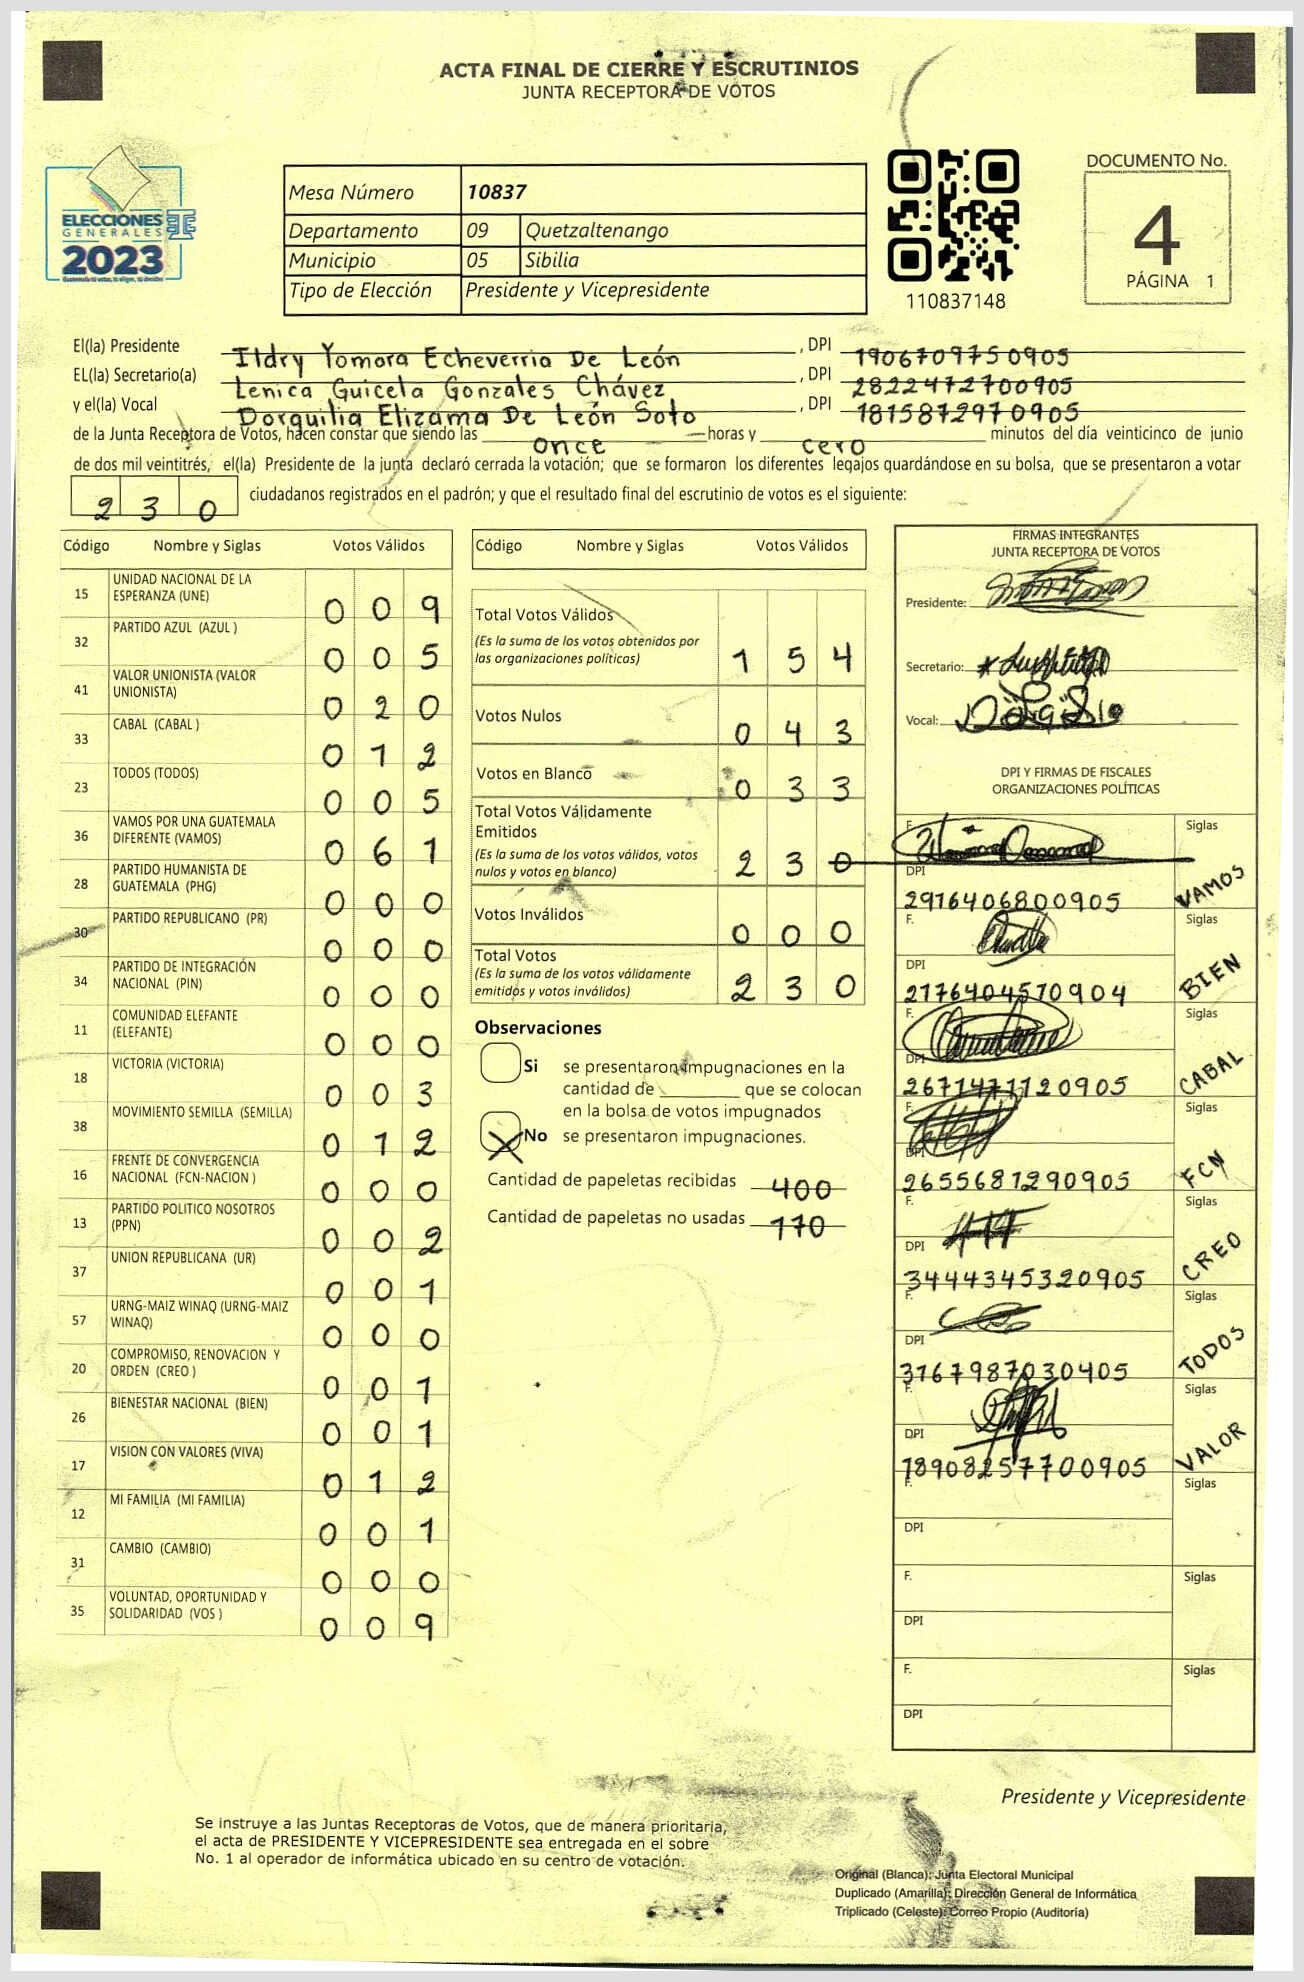 ACTA FINAL DE CIERRE Y ESCRUTINIOS
JUNTA RECEPTORA DE VOTOS
ELECCIONES
GENERALES
2023
Mesa Número 10837
Departamento 09 Quetzaltenango
Municipio 05 Sibilia
Tipo de Elección Presidente y Vicepresidente
110837148
DOCUMENTO No.
4
PÁGINA 1
El(la) Presidente Ildry Yomara Echeverria De León, DPI 1906709750905
EL(la) Secretario(a) Lenica Guicela Gonzales Chávez, DPI 2822472700905
y el(la) Vocal Dorquilia Elizama De León Soto, DPI 1815872970905
de la Junta Receptora de Votos, hacen constar que siendo las once horas y cero minutos del día veinticinco de junio
de dos mil veintitrés, el(la) Presidente de la junta declaró cerrada la votación; que se formaron los diferentes legajos quardándose en su bolsa, que se presentaron a votar
230 ciudadanos registrados en el padrón; y que el resultado final del escrutinio de votos es el siguiente:
Código Nombre y Siglas Votos Válidos
15 UNIDAD NACIONAL DE LA
ESPERANZA (UNE) 0 0 9
32 PARTIDO AZUL (AZUL ) 0 0 5
41 VALOR UNIONISTA (VALOR
UNIONISTA) 0 2 0
33 CABAL (CABAL ) 0 1 2
23 TODOS (TODOS) 0 0 5
36 VAMOS POR UNA GUATEMALA
DIFERENTE (VAMOS) 0 6 1
28 PARTIDO HUMANISTA DE
GUATEMALA (PHG) 0 0 0
30 PARTIDO REPUBLICANO (PR) 0 0 0
34 PARTIDO DE INTEGRACIÓN
NACIONAL (PIN) 0 0 0
11 COMUNIDAD ELEFANTE
(ELEFANTE) 0 0 0
18 VICTORIA (VICTORIA) 0 0 3
38 MOVIMIENTO SEMILLA (SEMILLA) 0 1 2
16 FRENTE DE CONVERGENCIA
NACIONAL (FCN-NACION ) 0 0 0
13 PARTIDO POLITICO NOSOTROS
(PPN) 0 0 2
37 UNION REPUBLICANA (UR) 0 0 1
57 URNG-MAIZ WINAQ (URNG-MAIZ
WINAQ) 0 0 0
20 COMPROMISO, RENOVACION Y
ORDEN (CREO ) 0 0 1
26 BIENESTAR NACIONAL (BIEN) 0 0 1
17 VISION CON VALORES (VIVA) 0 1 2
12 MI FAMILIA (MI FAMILIA) 0 0 1
31 CAMBIO (CAMBIO) 0 0 0
35 VOLUNTAD, OPORTUNIDAD Y
SOLIDARIDAD (VOS ) 0 0 9
Código Nombre y Siglas Votos Válidos
Total Votos Válidos
(Es la suma de los votos obtenidos por
las organizaciones políticas) 1 5 4
Votos Nulos 0 4 3
Votos en Blanco 0 3 3
Total Votos Válidamente
Emitidos
(Es la suma de los votos válidos, votos
nulos y votos en blanco) 2 3 0
Votos Inválidos 0 0 0
Total Votos
(Es la suma de los votos válidamente
emitidos y votos inválidos) 2 3 0
Observaciones
Si se presentaron impugnaciones en la
cantidad de ________ que se colocan
en la bolsa de votos impugnados
X No se presentaron impugnaciones.
Cantidad de papeletas recibidas 400
Cantidad de papeletas no usadas 170
FIRMAS INTEGRANTES
JUNTA RECEPTORA DE VOTOS
Presidente:
Secretario:
Vocal:
DPI Y FIRMAS DE FISCALES
ORGANIZACIONES POLÍTICAS
F. Siglas
DPI 2916406800905 VAMOS
F. Siglas
DPI 2776404570904 BIEN
F. Siglas
DPI 2671471120905 CABAL
F. Siglas
DPI 2655681290905 FCN
F. Siglas
DPI 3444345320905 CREO
F. Siglas
DPI 3167987030405 TODOS
F. Siglas
DPI 18908257700905 VALOR
F. Siglas
DPI
F. Siglas
DPI
F. Siglas
DPI
Presidente y Vicepresidente
Se instruye a las Juntas Receptoras de Votos, que de manera prioritaria,
el acta de PRESIDENTE Y VICEPRESIDENTE sea entregada en el sobre
No. 1 al operador de informática ubicado en su centro de votación.
Original (Blanca): Junta Electoral Municipal
Duplicado (Amarilla): Dirección General de Informática
Triplicado (Celeste): Correo Propio (Auditoría)